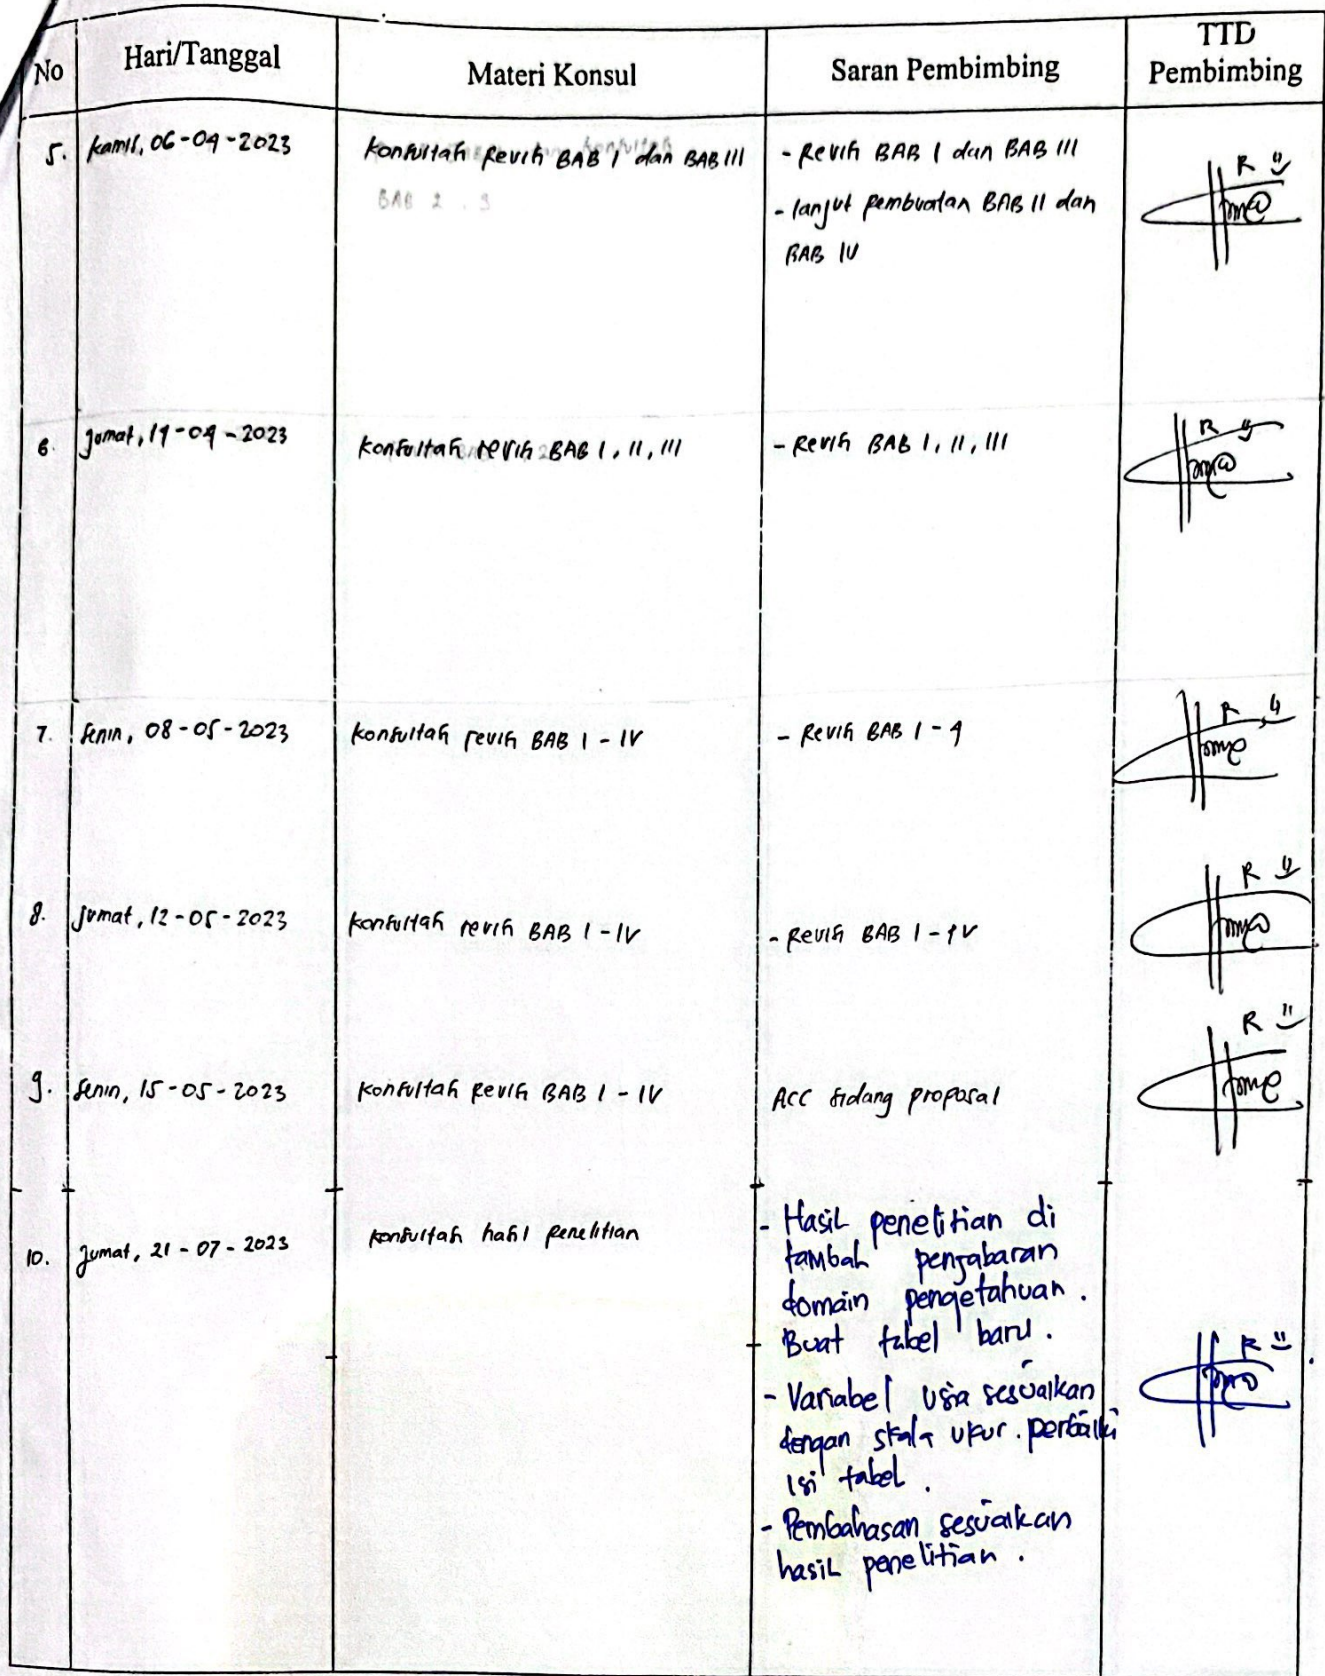 No Hari/Tanggal Materi Konsul Saran Pembimbing TTD Pembimbing
5. Kamis, 06-04-2023 Konsultasi Revisi BAB I dan BAB III - Revisi BAB I dan BAB III
BAB 2 . 3 - lanjut pembuatan BAB II dan
BAB IV
6. Jumat, 14-04-2023 Konsultasi revisi BAB I, II, III - Revisi BAB I, II, III
7. Senin, 08-05-2023 Konsultasi revisi BAB I - IV - Revisi BAB 1 - 4
8. Jumat, 12-05-2023 Konsultasi revisi BAB I - IV - Revisi BAB I - IV
9. Senin, 15-05-2023 Konsultasi Revisi BAB I - IV ACC sidang proposal
10. Jumat, 21-07-2023 Konsultasi hasil penelitian - Hasil penelitian di
tambah penjabaran
domain pengetahuan.
Buat tabel baru.
- Variabel usia sesuaikan
dengan skala ukur. perbaiki
isi tabel.
- Pembahasan sesuaikan
hasil penelitian.